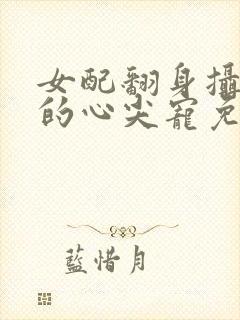 女配翻身攝
的心尖寵免
藍惜月